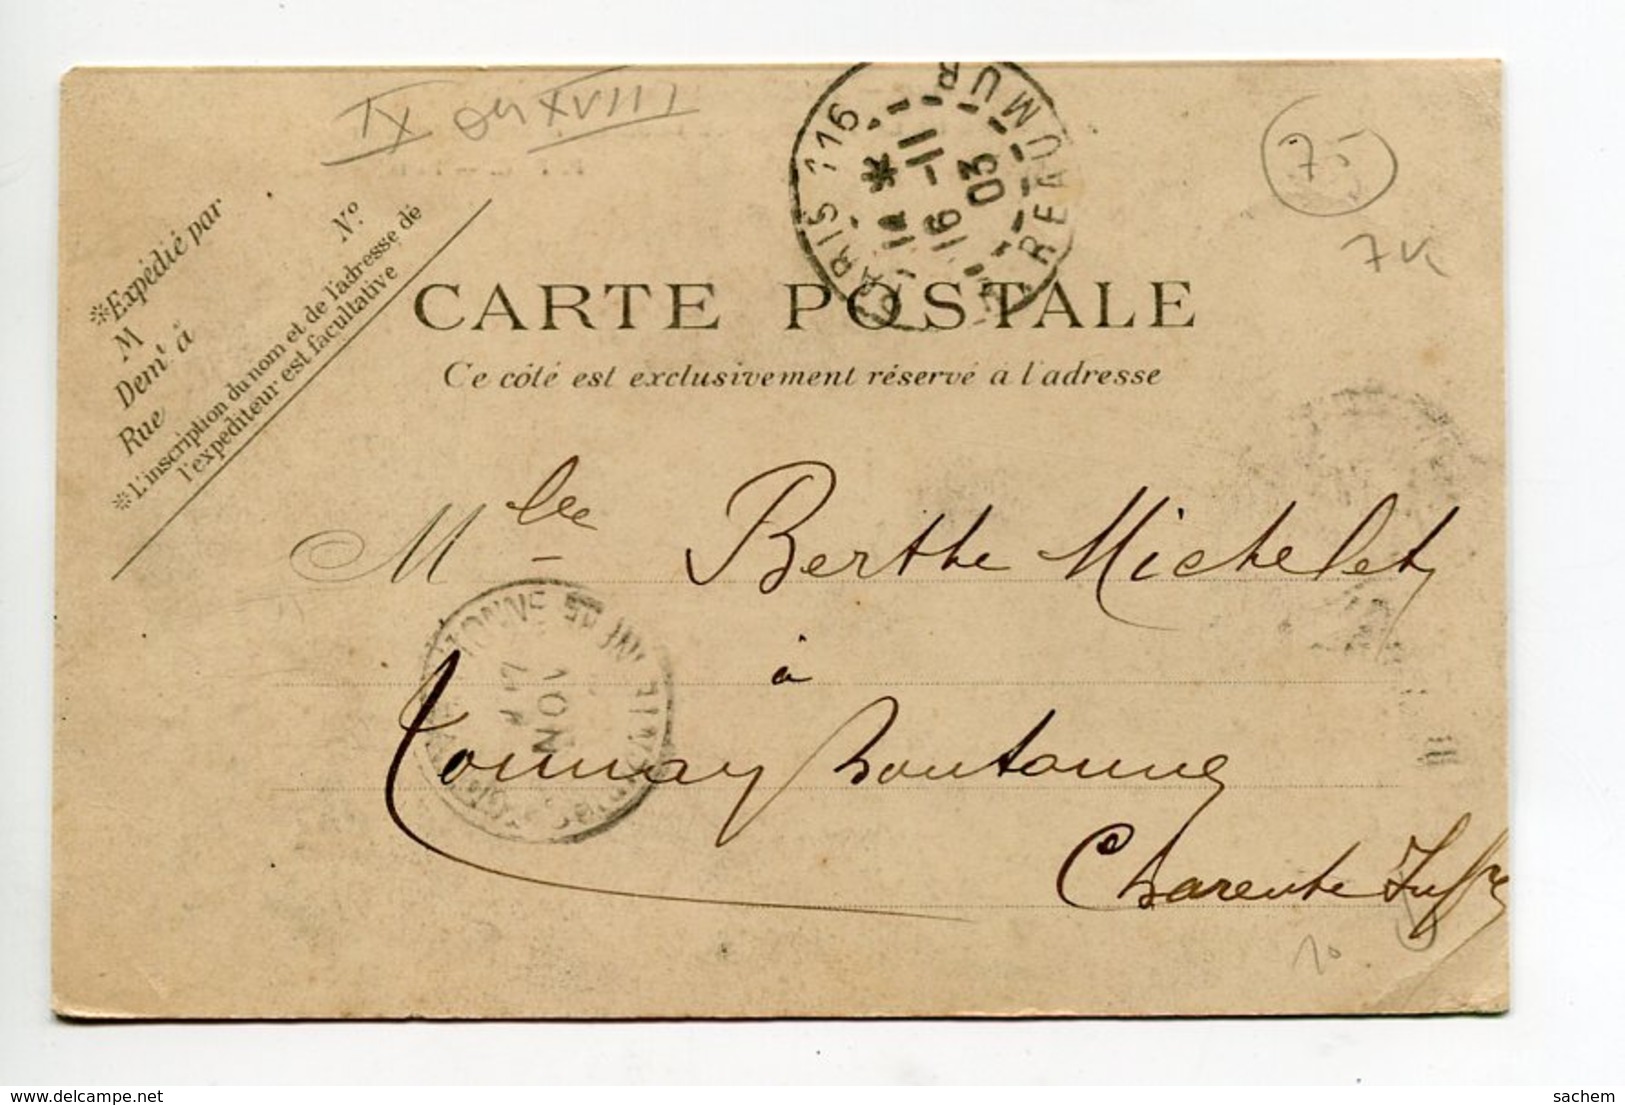 IX ou XVIII
75
7K
PARIS 116
REAUMUR
14 *
16 -11
03
*Expédié par
M
Dem.t à
Rue
N.o
*L'inscription du nom et de l'adresse de
l'expéditeur est facultative
CARTE POSTALE
Ce côté est exclusivement réservé a l'adresse
Mlle Berthe Michelet
à
Tonnay Boutonne
Charente Infre
NOV
10
delcampe.net
sachem